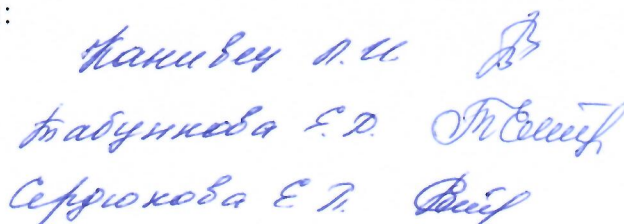 :
Канивец Л.И.
Табункова Е.Д.
Сердюкова Е.П.